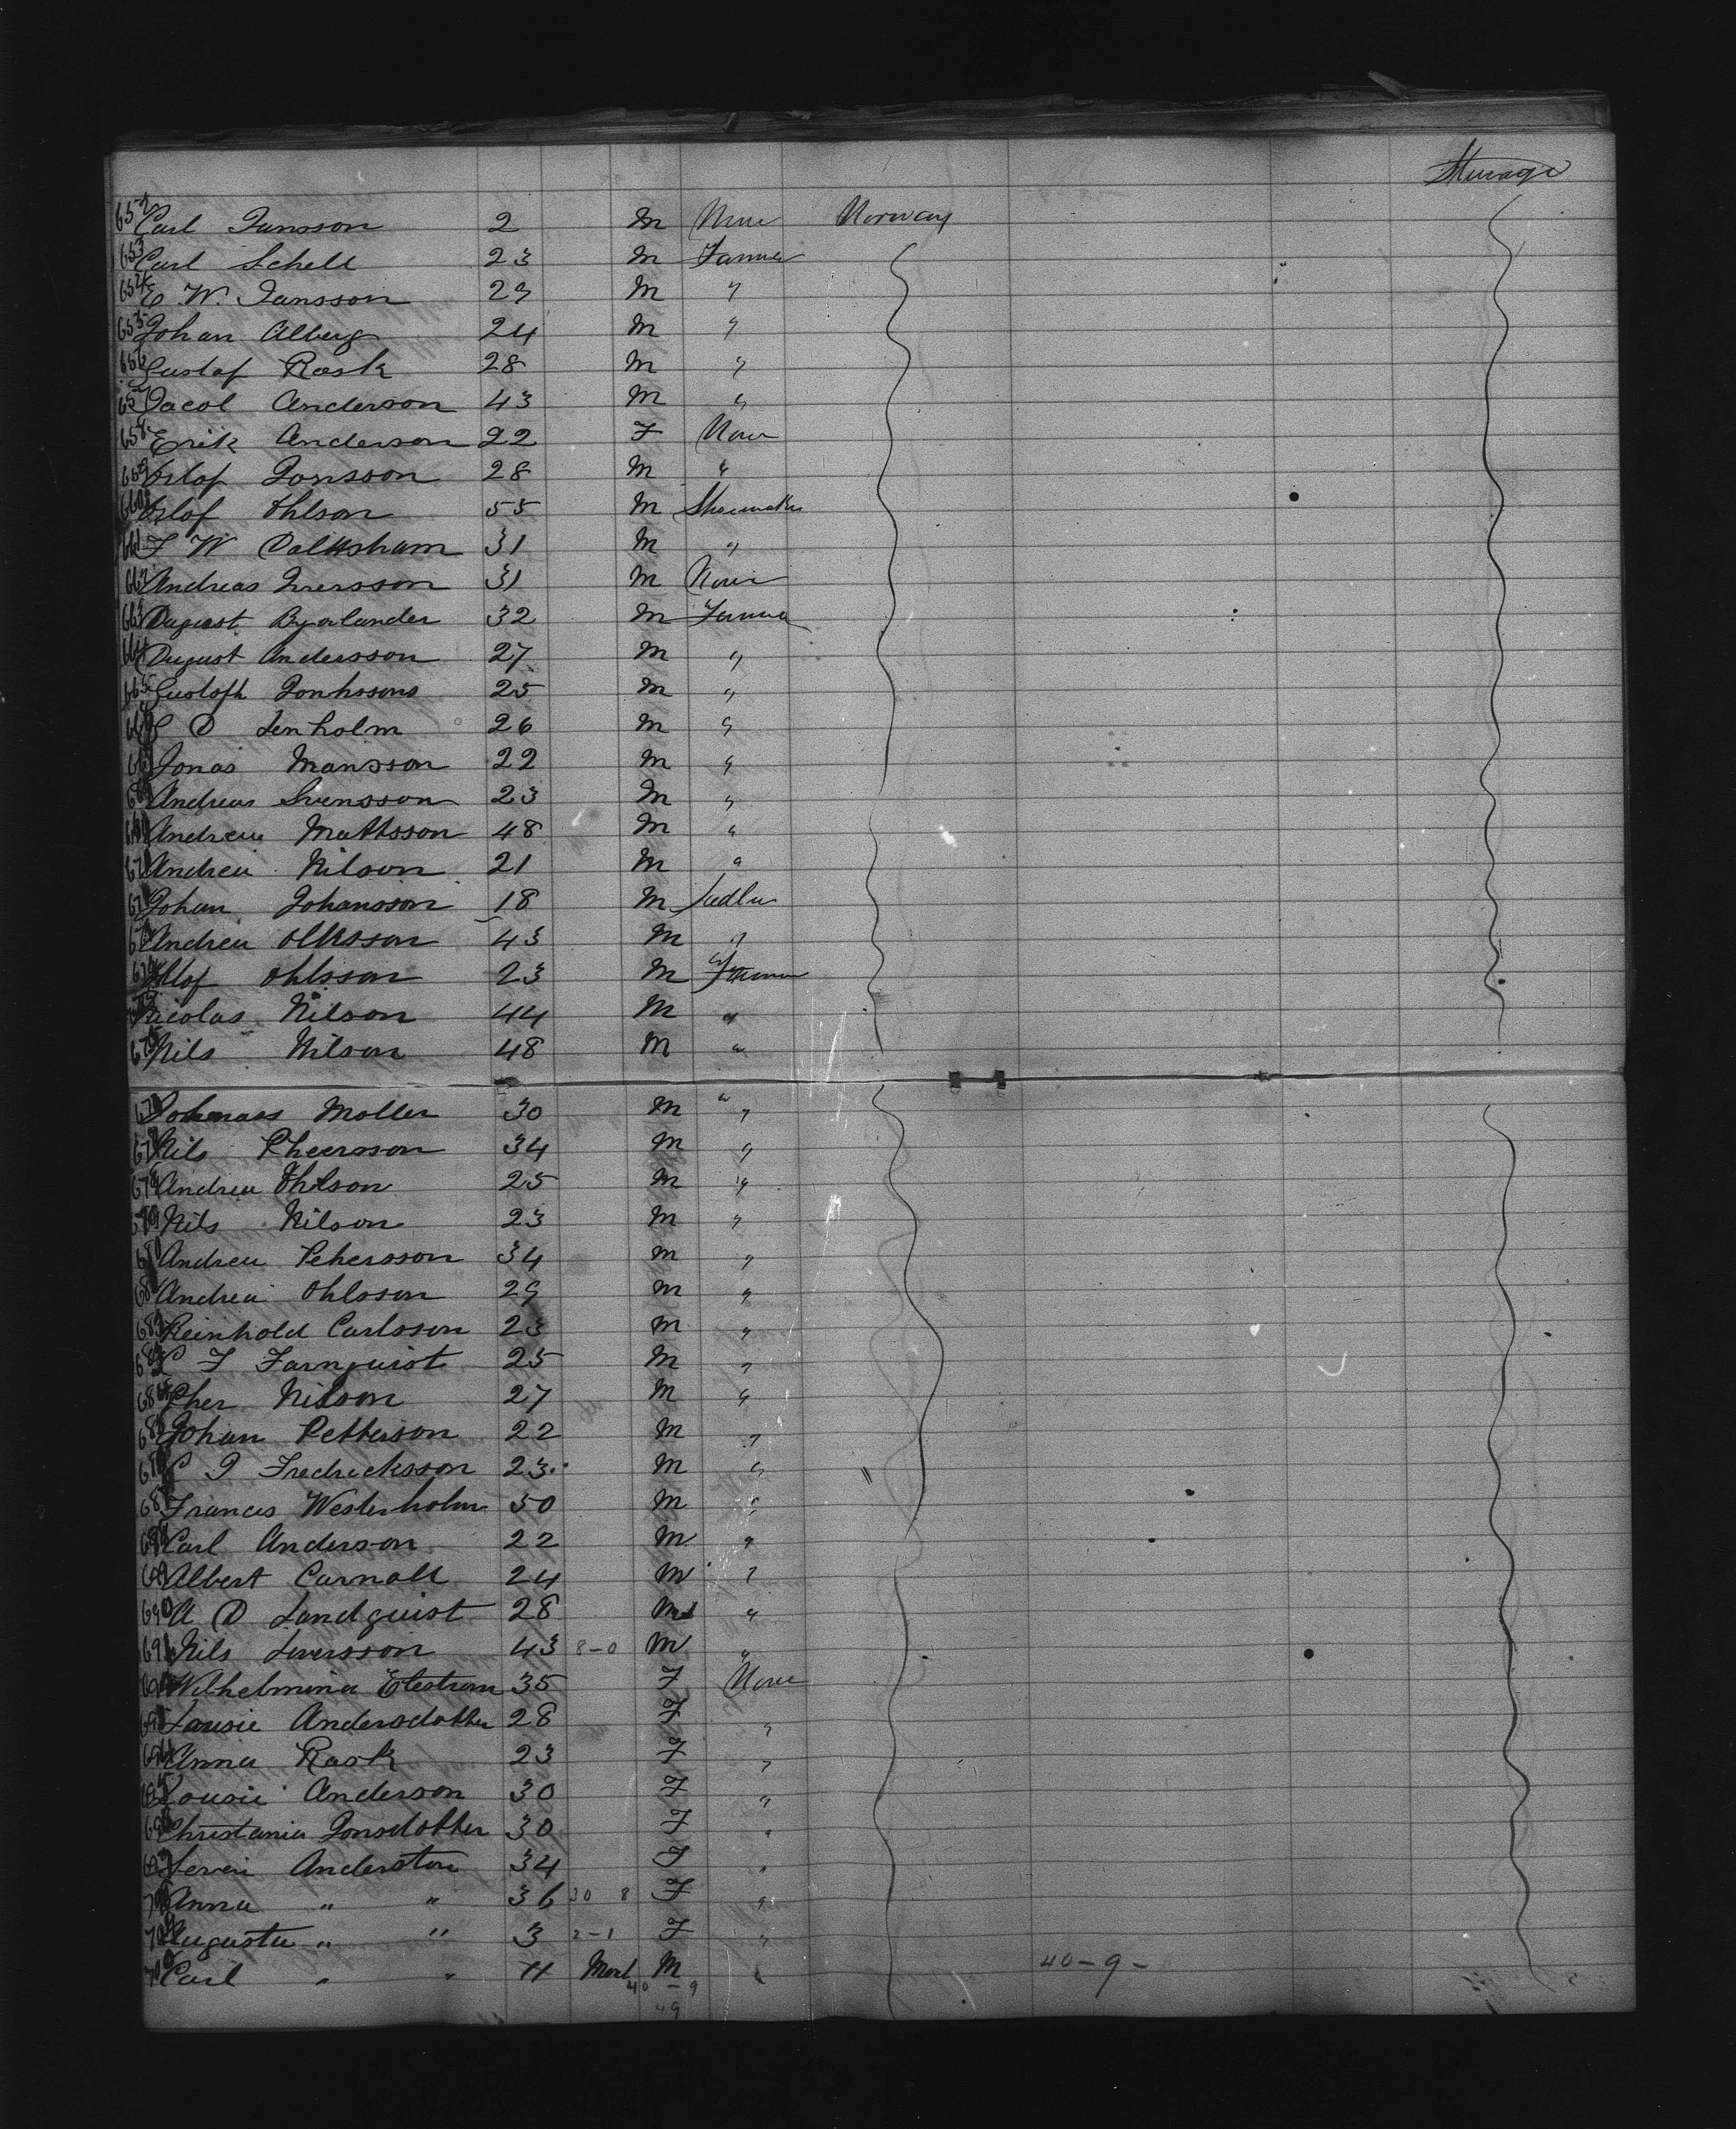 Steerage
652 Carl Jansson 2 M None Norway
653 Carl Schell 23 M Farmer
654 C W. Jansson 29 M "
655 Johan Alberg 24 M "
656 Gustaf Rask 28 M "
657 Jacob Anderson 43 M "
658 Erik Anderson 22 F None
659 Oslof Jonsson 28 M "
660 Oslof Ohlson 55 M Shoemaker
661 F W 31 M "
662 Andreas Iversson 31 M None
663 August Byerlander 32 M Farmer
664 August Andersson 27 M "
665 Gustofh Jonhssons 25 M "
G O Lenholm 26 M "
Jonas Mansson 22 M "
Andreas Svensson 23 M "
Andrew Mattsson 48 M "
Andrew Nilson 21 M "
Johan Johansson 18 M Sadler
Andrew Olsson 43 M "
Olof Ohlsson 23 M Farmer
Nicolas Nilson 44 M "
675 Nils Nilson 48 M "
Johmass Moller 30 M "
Nils Pheersson 34 M "
Andrew Ohlson 25 M "
Nils Nilson 23 M "
Andrew Pehersson 34 M "
Andrew Ohlsson 29 M "
Reinhold Carlsson 23 M "
F Farnquist 25 M "
Pher Nilson 27 M "
Johan Petterson 22 M "
C J Fredricksson 23 M "
687 Francis Westerholm 50 M "
688 Carl Anderson 22 M "
689 Albert Carnall 24 M "
690 A O Landquist 28 M "
691 Nils Siversson 43 8-0 M "
Wilhelmina Elestrom 35 F None
Lousie Andersdotter 28 F "
694 Anna Rask 23 F "
695 Lousie Anderson 30 F "
Christania Jonsdotter 30 F "
Anderston 34 F "
Anna " " 36 30 8 F "
Augusta " " 3 2-1 F "
700 Carl " " 11 Mos M " 40-9-
40-9
49